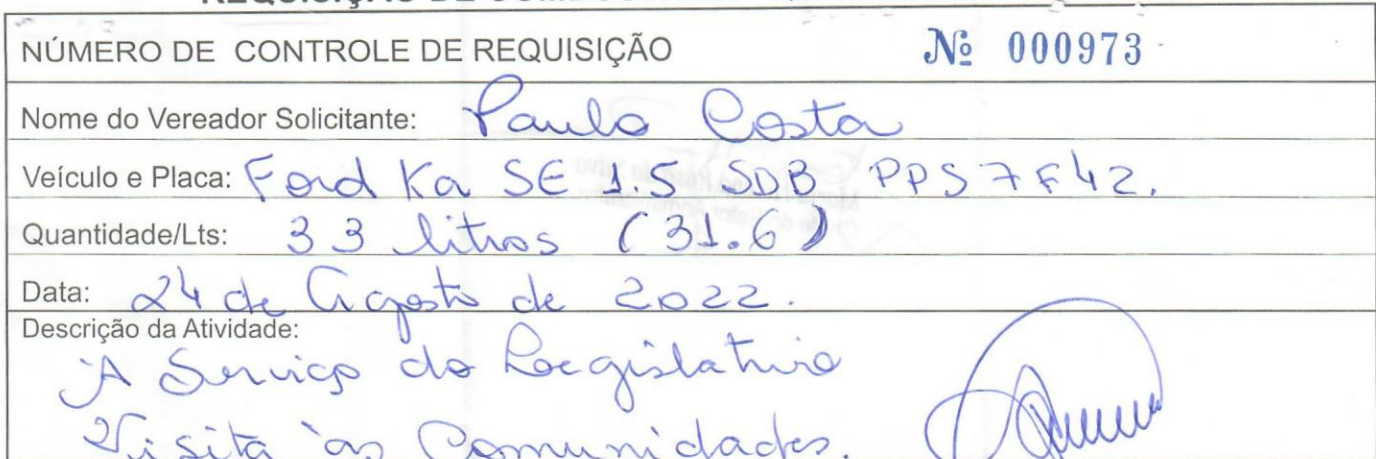 REQUISIÇÃO DE
NÚMERO DE CONTROLE DE REQUISIÇÃO Nº 000973
Nome do Vereador Solicitante: Paulo Costa
Veículo e Placa: Ford Ka SE 1.5 SDB PPS7F42.
Quantidade/Lts: 33 litros (31.6)
Data: 24 de Agosto de 2022.
Descrição da Atividade:
A Serviço do Legislativo
Visita às Comunidades.